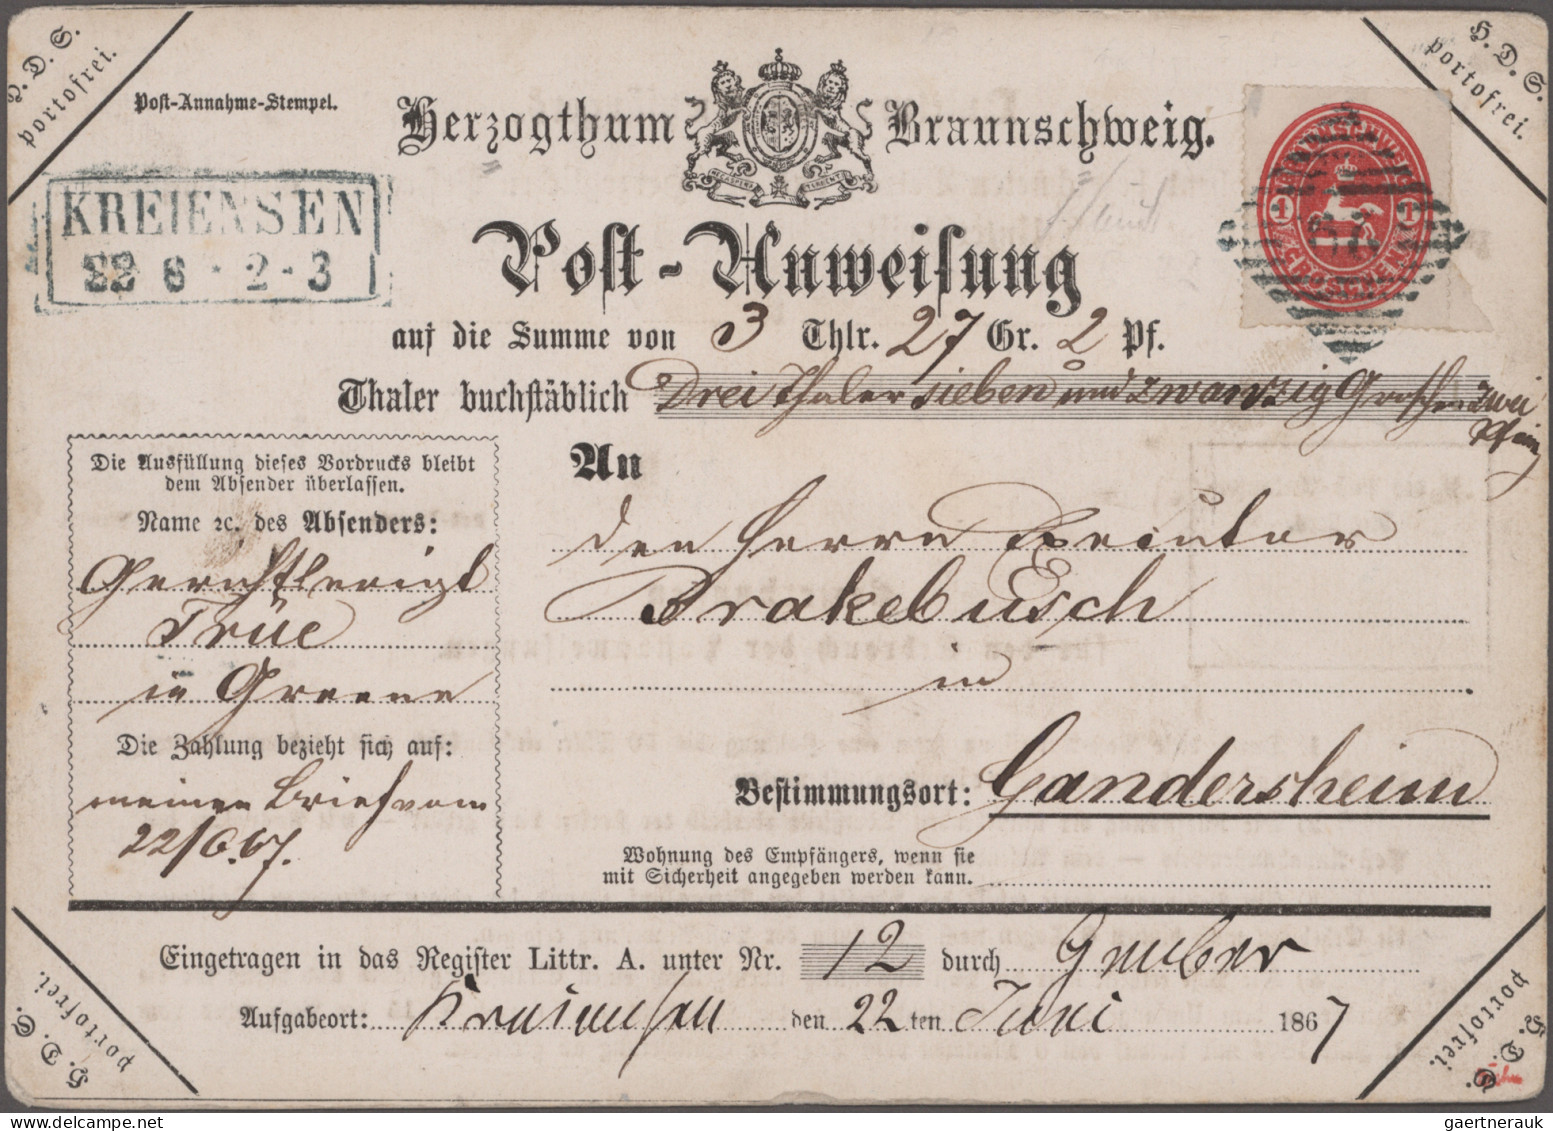 H. D. S.
portofrei.
H. D. S.
portofrei.
Post-Annahme-Stempel.
Herzogthum Braunschweig.
KREIENSEN
22 6 · 2-3
BRAUNSCHWEIG
1 1
GROSCHEN
Post-Anweisung
auf die Summe von 3 Thlr. 27 Gr. 2 Pf.
Thaler buchstäblich Drei Thaler sieben und zwanzig Groschen zwei
Pfennig
Die Ausfüllung dieses Vordrucks bleibt
dem Absender überlassen.
Name ꝛc. des Absenders:
Trüe
in Greene
Die Zahlung bezieht sich auf:
meinen Brief vom
22/6.67.
An
den Herrn
Brakebusch
in
Bestimmungsort: Gandersheim
Wohnung des Empfängers, wenn sie
mit Sicherheit angegeben werden kann.
Eingetragen in das Register Littr. A. unter Nr. 12 durch Gruber
Aufgabeort: Kreiensen den 22ten Juni 1867
H. D. S.
portofrei.
H. D. S.
portofrei.
gaertnerauk